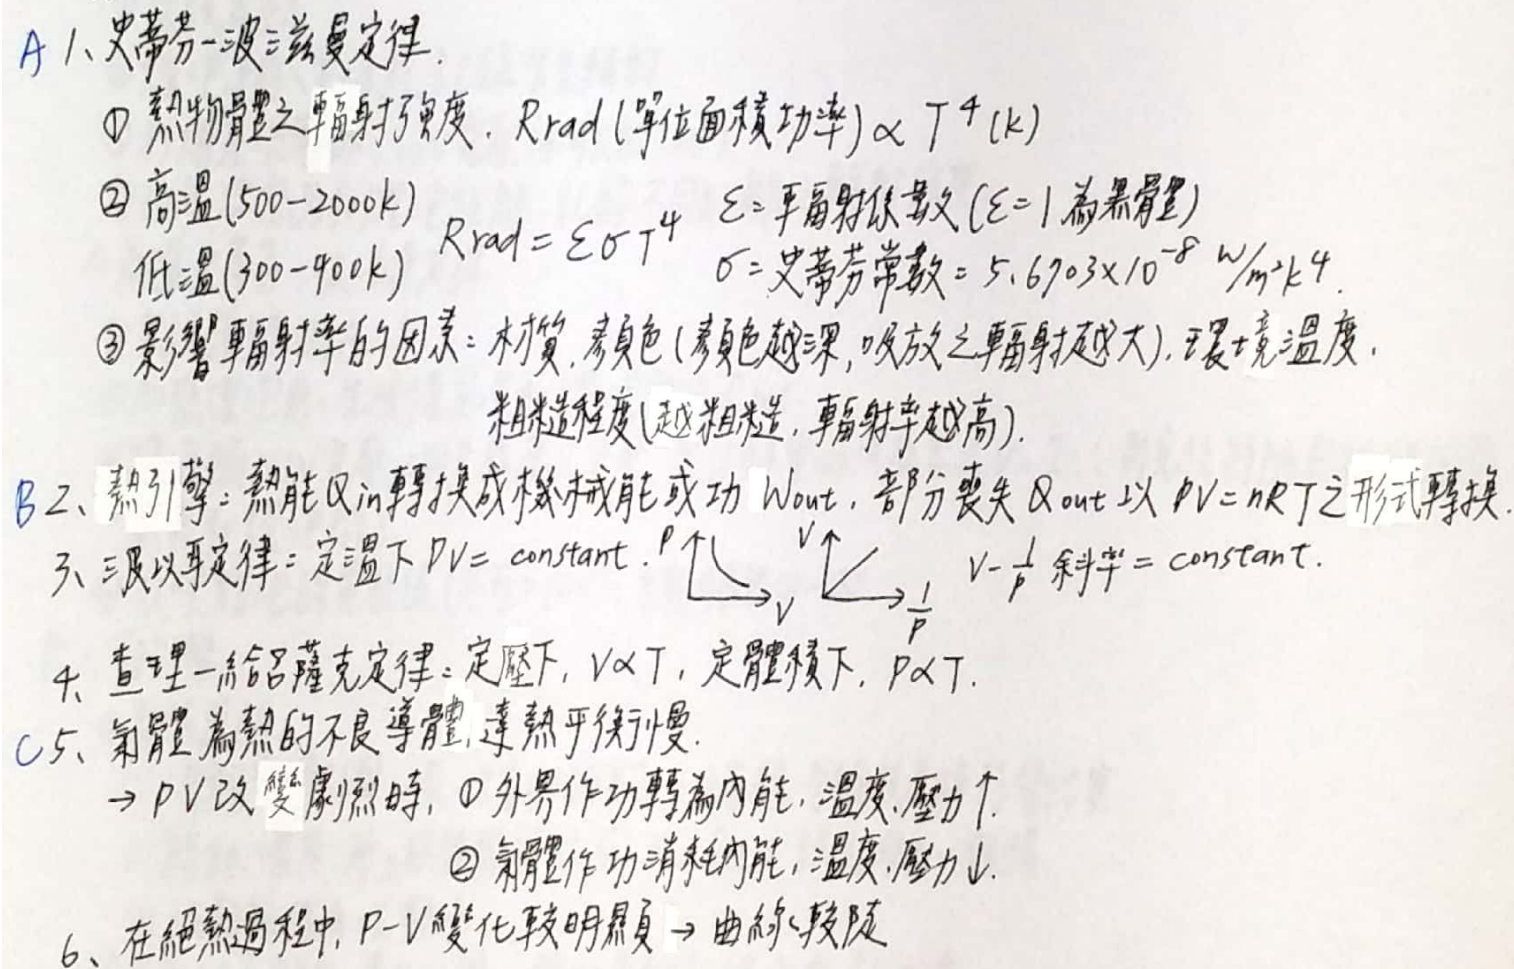 A 1、史蒂芬-波茲曼定律.
① 熱物體之輻射強度. Rrad (單位面積功率) ∝ T⁴ (K)
② 高溫(500-2000k) ε=輻射係數(ε=1為黑體)
低溫(300-400k) Rrad = εσT⁴ σ=史蒂芬常數=5.6703×10⁻⁸ W/m²k⁴.
③ 影響輻射率的因素:材質.顏色(顏色越深,吸放之輻射越大).環境溫度.
粗糙程度(越粗糙,輻射率越高).
B 2、熱引擎:熱能Qin轉換成機械能或功 Wout,部分喪失 Qout 以 PV=nRT之形式轉換.
3、波以耳定律:定溫下 PV= constant. P V V 1/P V-1/P 斜率= constant.
4、查理-給呂薩克定律:定壓下, V∝T, 定體積下, P∝T.
C 5、氣體為熱的不良導體,達熱平衡慢.
→ PV改變劇烈時, ① 外界作功轉為內能,溫度.壓力↑.
② 氣體作功消耗內能,溫度.壓力↓.
6、在絕熱過程中, P-V變化較明顯 → 曲線較陡